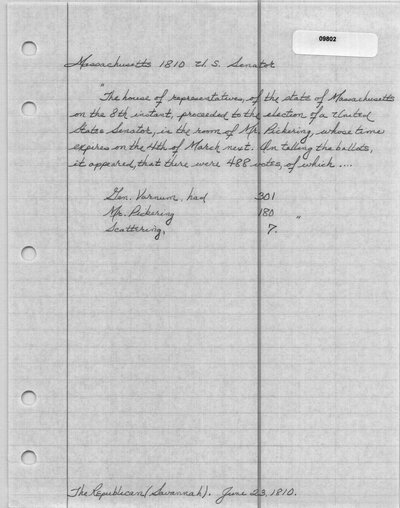 09802
Massachusetts 1810 U.S. Senator
"The house of representatives, of the state of Massachusetts
on the 8th instant, proceeded to the election of a United
States Senator, in the room of Mr. Pickering, whose time
expires on the 4th of March next. On telling the ballots,
it appeared, that there were 488 votes, of which ....
Gen. Varnum, had 301
Mr. Pickering 180 "
Scattering, 7.
The Republican (Savannah). June 23, 1810.